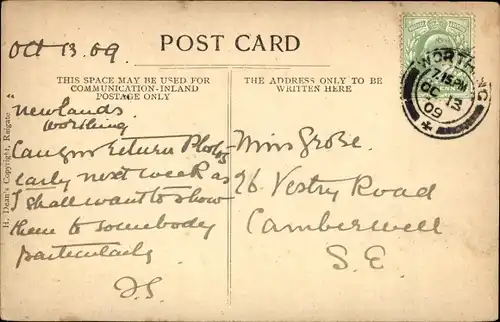 Oct 13.09
POST CARD
THIS SPACE MAY BE USED FOR
COMMUNICATION-INLAND
POSTAGE ONLY
THE ADDRESS ONLY TO BE
WRITTEN HERE
WORTHING
7.15 PM
OC 13
09
H. Dean's Copyright, Reigate
"Newlands
Worthing
Can you return Photos
early next week as
I shall want to show
them to somebody
particularly
Miss Grose.
Vestry Road
Camberwell
S.E.